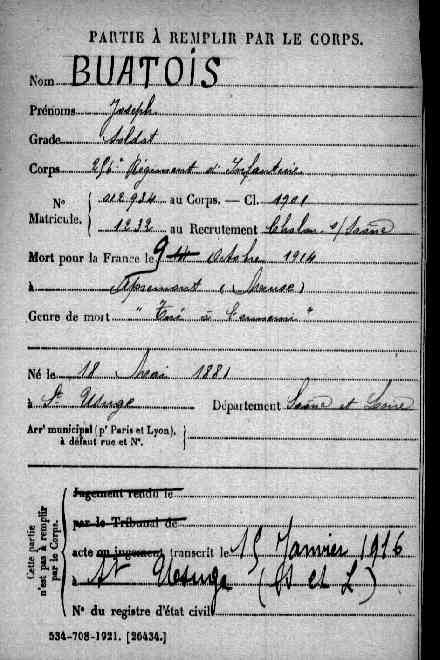 PARTIE À REMPLIR PAR LE CORPS.
Nom BUATOIS
Prénoms Joseph
Grade Soldat
Corps 256e Régiment d'Infanterie
No Matricule. 012.934 au Corps. — Cl. 1901
1232 au Recrutement Chalon s/Saône
Mort pour la France le 9 octobre 1914
à Apremont (Meuse)
Genre de mort "Tué à l'ennemi"
Né le 18 Mai 1881
à St Usuge Département Saône et Loire
Arrt municipal (pr Paris et Lyon),
à défaut rue et No.
Cette partie n'est pas à remplir par le Corps.
Jugement rendu le
par le Tribunal de
acte ou jugement transcrit le 15 Janvier 1916
à St Usuge (S et L)
No du registre d'état civil
534-708-1921. [26434.]